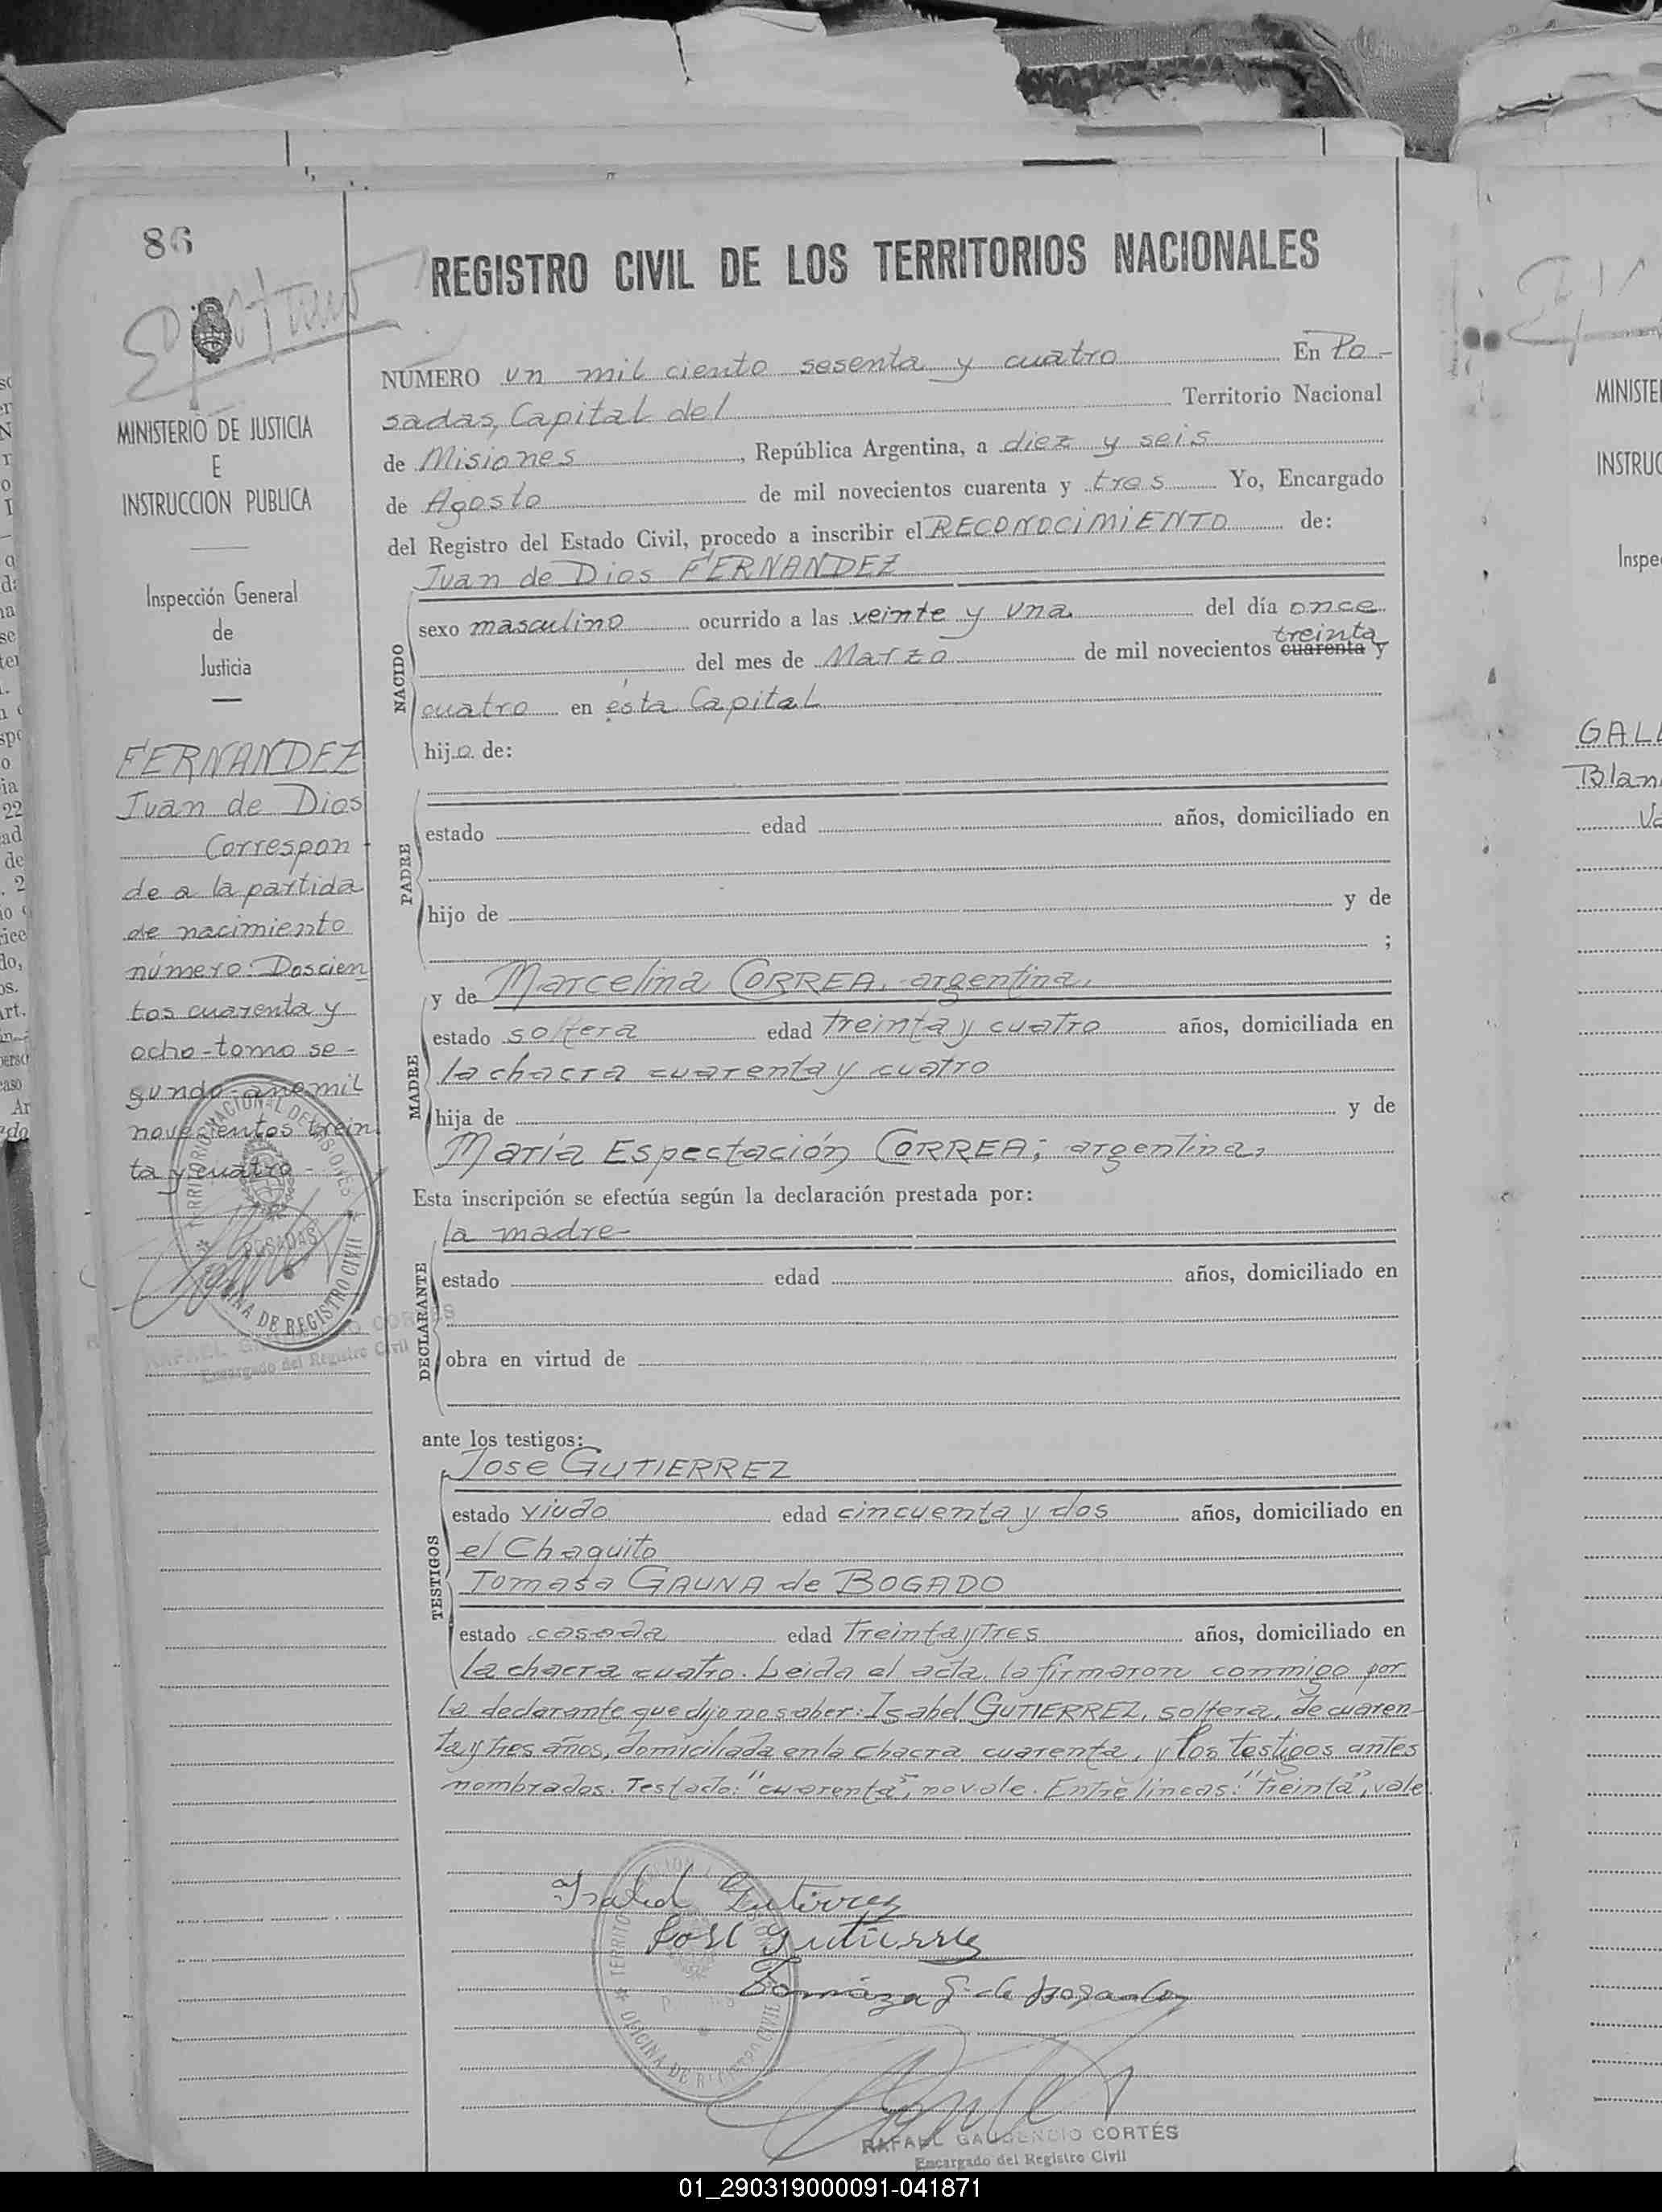 86
REGISTRO CIVIL DE LOS TERRITORIOS NACIONALES
MINISTERIO DE JUSTICIA
E
INSTRUCCION PUBLICA
Inspección General
de
Justicia
FERNANDEZ
Juan de Dios
Correspon-
de a la partida
de nacimiento
número: Doscien
tos cuarenta y
ocho - tomo se-
gundo - año mil
novecientos trein
ta y cuatro -
TERRITORIO NACIONAL DE MISIONES
POSADAS
OFICINA DE REGISTRO CIVIL
RAFAEL GAUDENCIO CORTES
Encargado del Registro Civil
NÚMERO un mil ciento sesenta y cuatro En Po-
sadas, Capital del Territorio Nacional
de Misiones, República Argentina, a diez y seis
de Agosto de mil novecientos cuarenta y tres Yo, Encargado
del Registro del Estado Civil, procedo a inscribir el RECONOCIMIENTO de:
Juan de Dios FERNANDEZ
NACIDO
sexo masculino ocurrido a las veinte y una del día once
treinta
del mes de Marzo de mil novecientos cuarenta y
cuatro en ésta Capital
hijo de:
PADRE
estado edad años, domiciliado en
hijo de y de
;
y de Marcelina CORREA, argentina,
MADRE
estado soltera edad treinta y cuatro años, domiciliada en
la chacra cuarenta y cuatro
hija de y de
María Espectación CORREA; argentina,
Esta inscripción se efectúa según la declaración prestada por:
la madre
DECLARANTE
estado edad años, domiciliado en
obra en virtud de
ante los testigos:
José GUTIERREZ
TESTIGOS
estado viudo edad cincuenta y dos años, domiciliado en
el Chaquito
Tomasa GAUNA de BOGADO
estado casada edad treinta y tres años, domiciliado en
la chacra cuatro. Leida el acta, la firmaron conmigo por
la declarante que dijo no saber: Isabel GUTIERREZ, soltera, de cuaren-
ta y tres años, domiciliada en la chacra cuarenta, y los testigos antes
nombrados. Testado: "cuarenta", no vale. Entre líneas: "treinta", vale
Isabel Gutierrez
José Gutierrez
Tomaza G. de Bogado
OFICINA DE REGISTRO CIVIL
RAFAEL GAUDENCIO CORTÉS
Encargado del Registro Civil
MINISTE
INSTRUC
Inspe
GALL
Blan
01_290319000091-041871